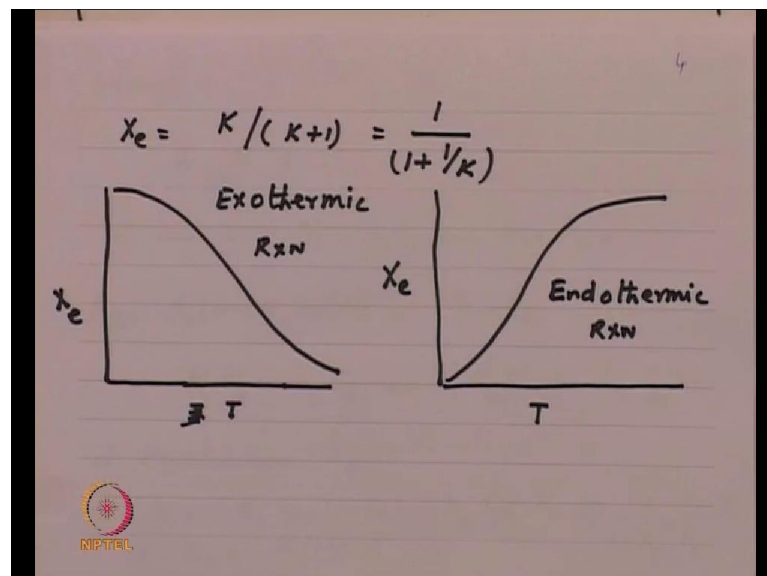 4
Xe = K/(K+1) = 1/(1+1/K)
Exothermic
RXN
Xe
T
Xe
Endothermic
RXN
T
NPTEL